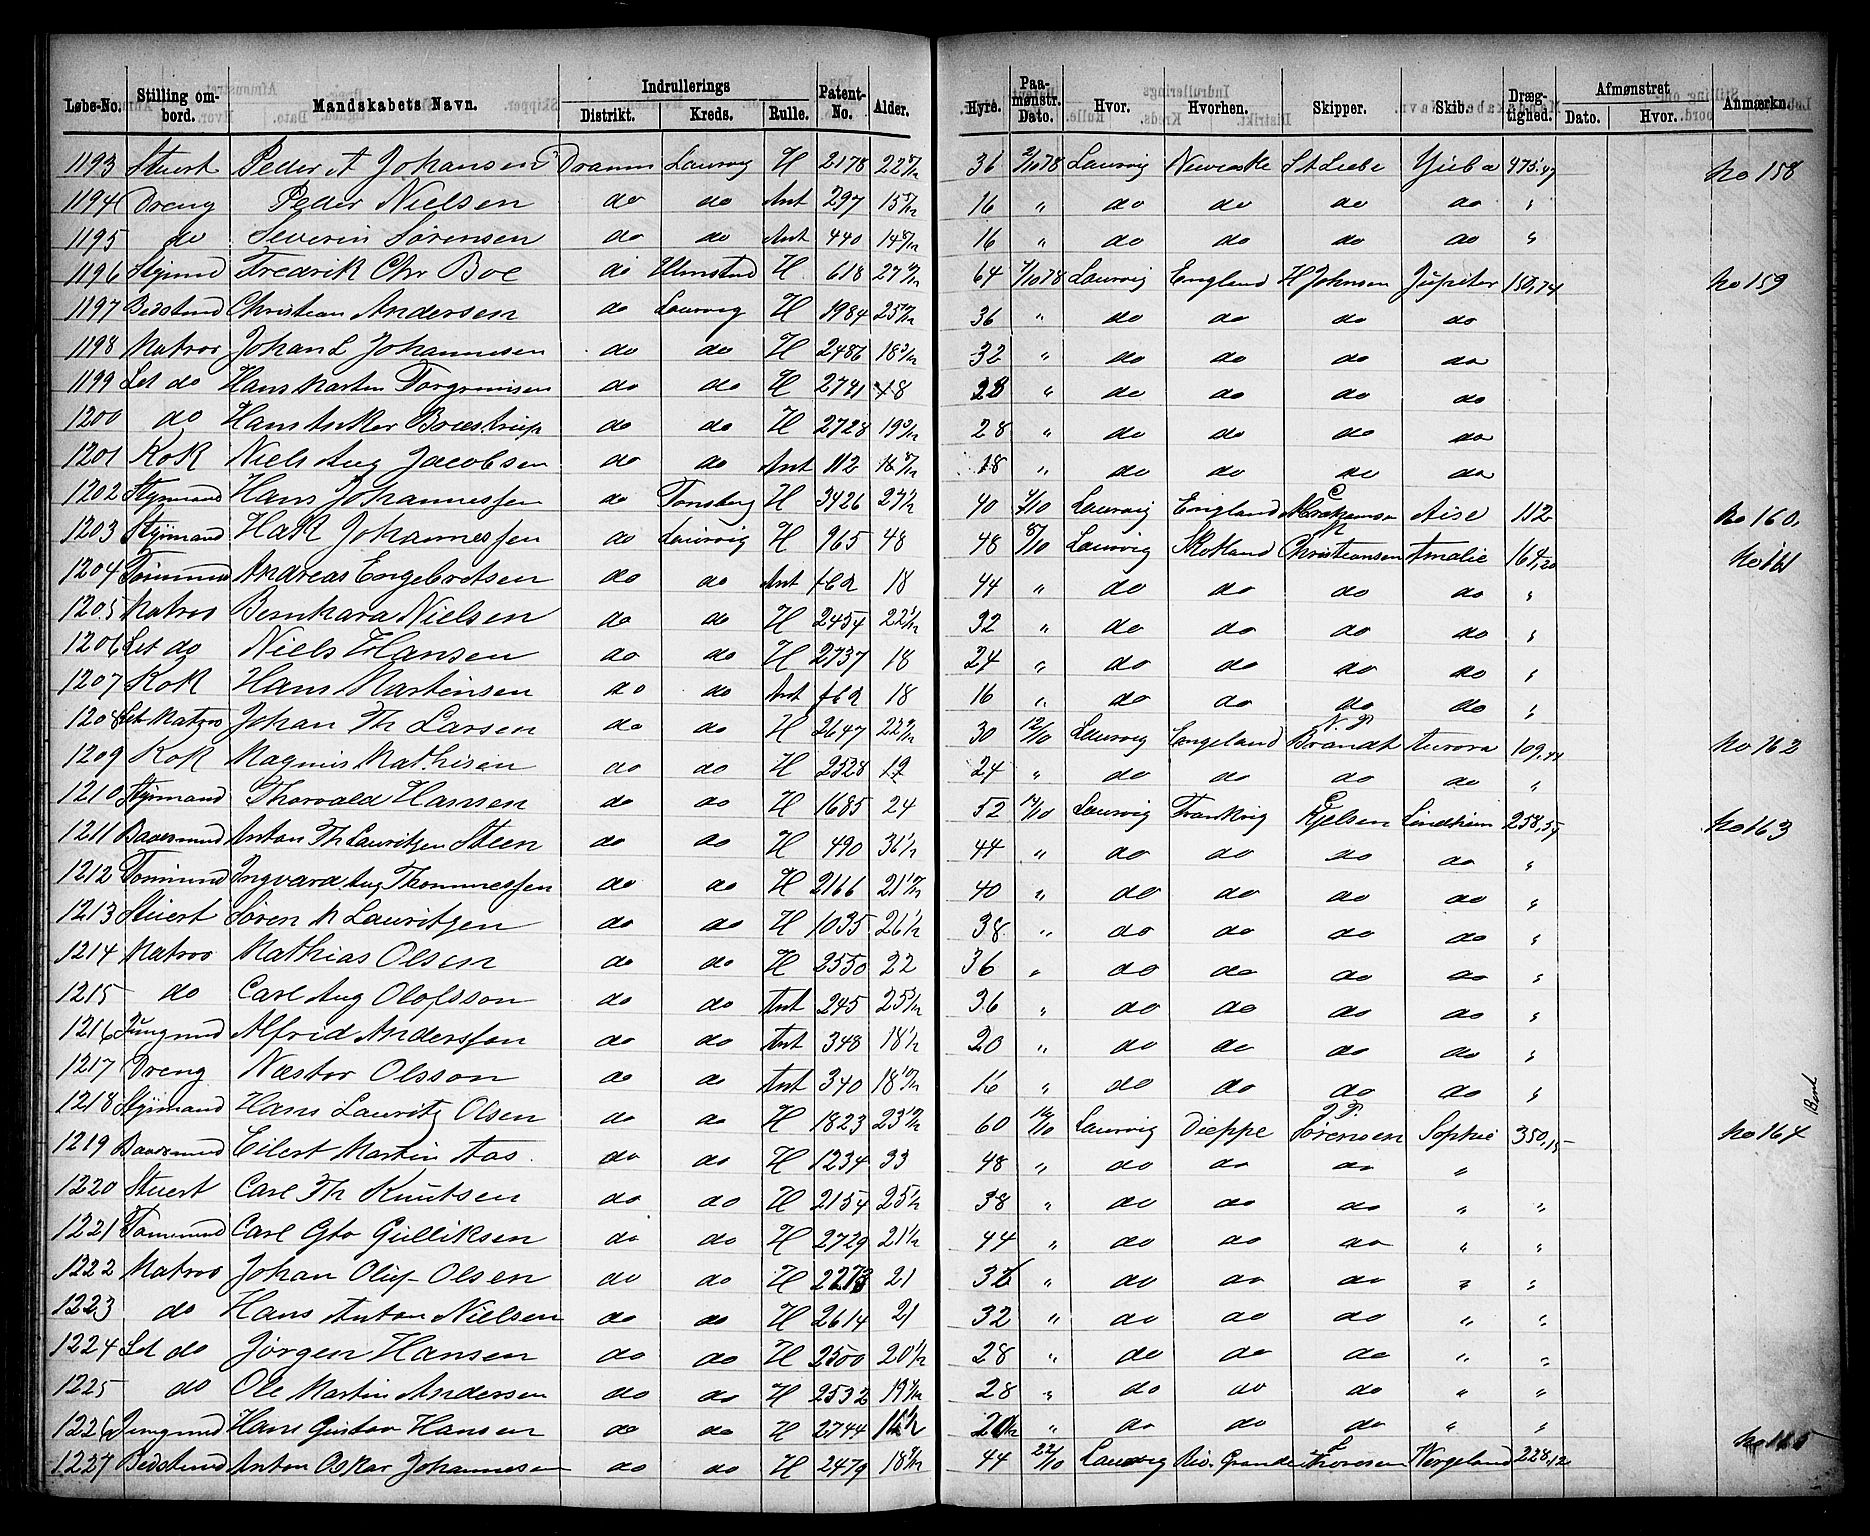 Løbe-No. Stilling ombord. Mandskabets Navn. Indrullerings Distrikt. Kreds. Rulle. Patent-No. Alder. Hyre. Paamønstr. Dato. Hvor. Hvorhen. Skipper. Skib. Drægtighed. Afmønstret Dato. Hvor. Anmærkn.
1193 Stuert Peder A Johansen Dramm Laurvig H 2178 22 36 2/10 78 Laurvig St Liebe 475,47 No 158
1194 Dreng Peder Nielsen do do Ant 297 15 16 " do do do do "
1195 do Severin Sørensen do do Ant 440 14 16 " do do do do "
1196 Styrmd Fredrik Chr Boe do H 618 27 64 7/10 78 Laurvig England H Johnsen Jupiter 150,74 No 159
1197 Bedstmd Christian Andersen do Laurvig H 1984 25 36 " do do do do
1198 Matros Johan L Johannesen do do H 2486 18 32 " do do do do
1199 Let do Hans Martin do do H 2791 18 28 " do do do do
1200 do Hans Anker do do H 2728 19 28 " do do do do
1201 Kok Niels Aug Jacobsen do do Ant 112 16 18 " do do do do
1202 Styrmand Hans Johannessen do Tønsberg H 3426 27 40 7/10 Laurvig England C Abrahamsen Aise 112 No 160
1203 Styrmand Johannessen do Laurvig H 965 48 48 8/10 Laurvig Skotland Christiansen Amalie 164,20 No 161
1204 Tømmd Andreas Engebretsen do do Ant 162 18 44 " do do do do "
1205 Matros Bernhard Nielsen do do H 2454 22 32 " do do do do "
1206 Let do Niels Hansen do do H 2737 18 24 " do do do do "
1207 Kok Hans Martinsen do do Ant 162 18 16 " do do do do "
1208 Let Matros Johan Th Larsen do do H 2647 22 30 12/10 Laurvig Engeland N. P. Brandt Aurora 109,44 No 162
1209 Kok Magnus Mathisen do do H 2528 19 24 " do do do do "
1210 Styrmand Thorvald Hansen do do H 1685 24 52 14/10 Laurvig Frankrig C Kjelsen Lindheim 258,57 No 163
1211 Baadsmnd Anton Th Lauritzen Steen do do H 490 36 1/2 44 " do do do do "
1212 Tømmnd Ingvard Aug Thommessen do do H 2166 21 40 " do do do do "
1213 Stuert Søren M Lauritzen do do H 1035 26 1/2 38 " do do do do "
1214 Matros Mathias Olsen do do H 2550 22 36 " do do do do "
1215 do Carl Aug Olofsson do do Ant 245 25 36 " do do do do "
1216 Jungmnd Alfrid Anderssen do do Ant 348 18 1/2 20 " do do do do "
1217 Dreng Næstor Olsson do do Ant 340 18 16 " do do do do "
1218 Styrmand Hans Lauritz Olsen do do H 1823 23 60 16/10 Laurvig Dieppe J P. Sørensen Sophie 350,15 No 164
1219 Baadsmnd Eilert Martin Aas do do H 1234 33 48 " do do do "
1220 Stuert Carl Th Knutsen do do H 2154 25 1/2 38 " do do do " "
1221 Tømmnd Carl Gto Gulliksen do do H 2729 21 1/2 44 " do do do " "
1222 Matros Johan Oluf Olsen do do H 2273 21 32 " do do do " "
1223 do Hans Anton Nielsen do do H 2614 21 32 " do do do " "
1224 Let do Jørgen Hansen do do H 2500 20 1/2 28 " do do do " "
1225 do Ole Martin Andersen do do H 2532 19 28 " do do do " "
1226 Jungmnd Hans Gustav Hansen do do H 2744 16 1/2 20 " do do do " "
1227 Bedstmnd Anton Oskar Johannesen do do H 2479 18 44 22/10 Laurvig Rio Grande L Thoresen Wergeland 228,12 No 165